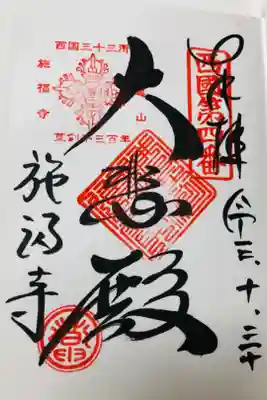 奉拝
令三、十、
西國第四番
大悲殿
西国三十三所
施福寺
山
草創千三百年
施福寺